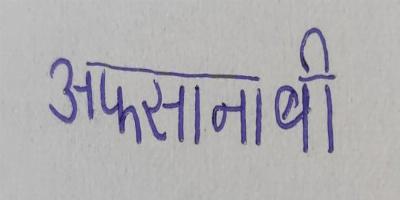 अफसानाबी